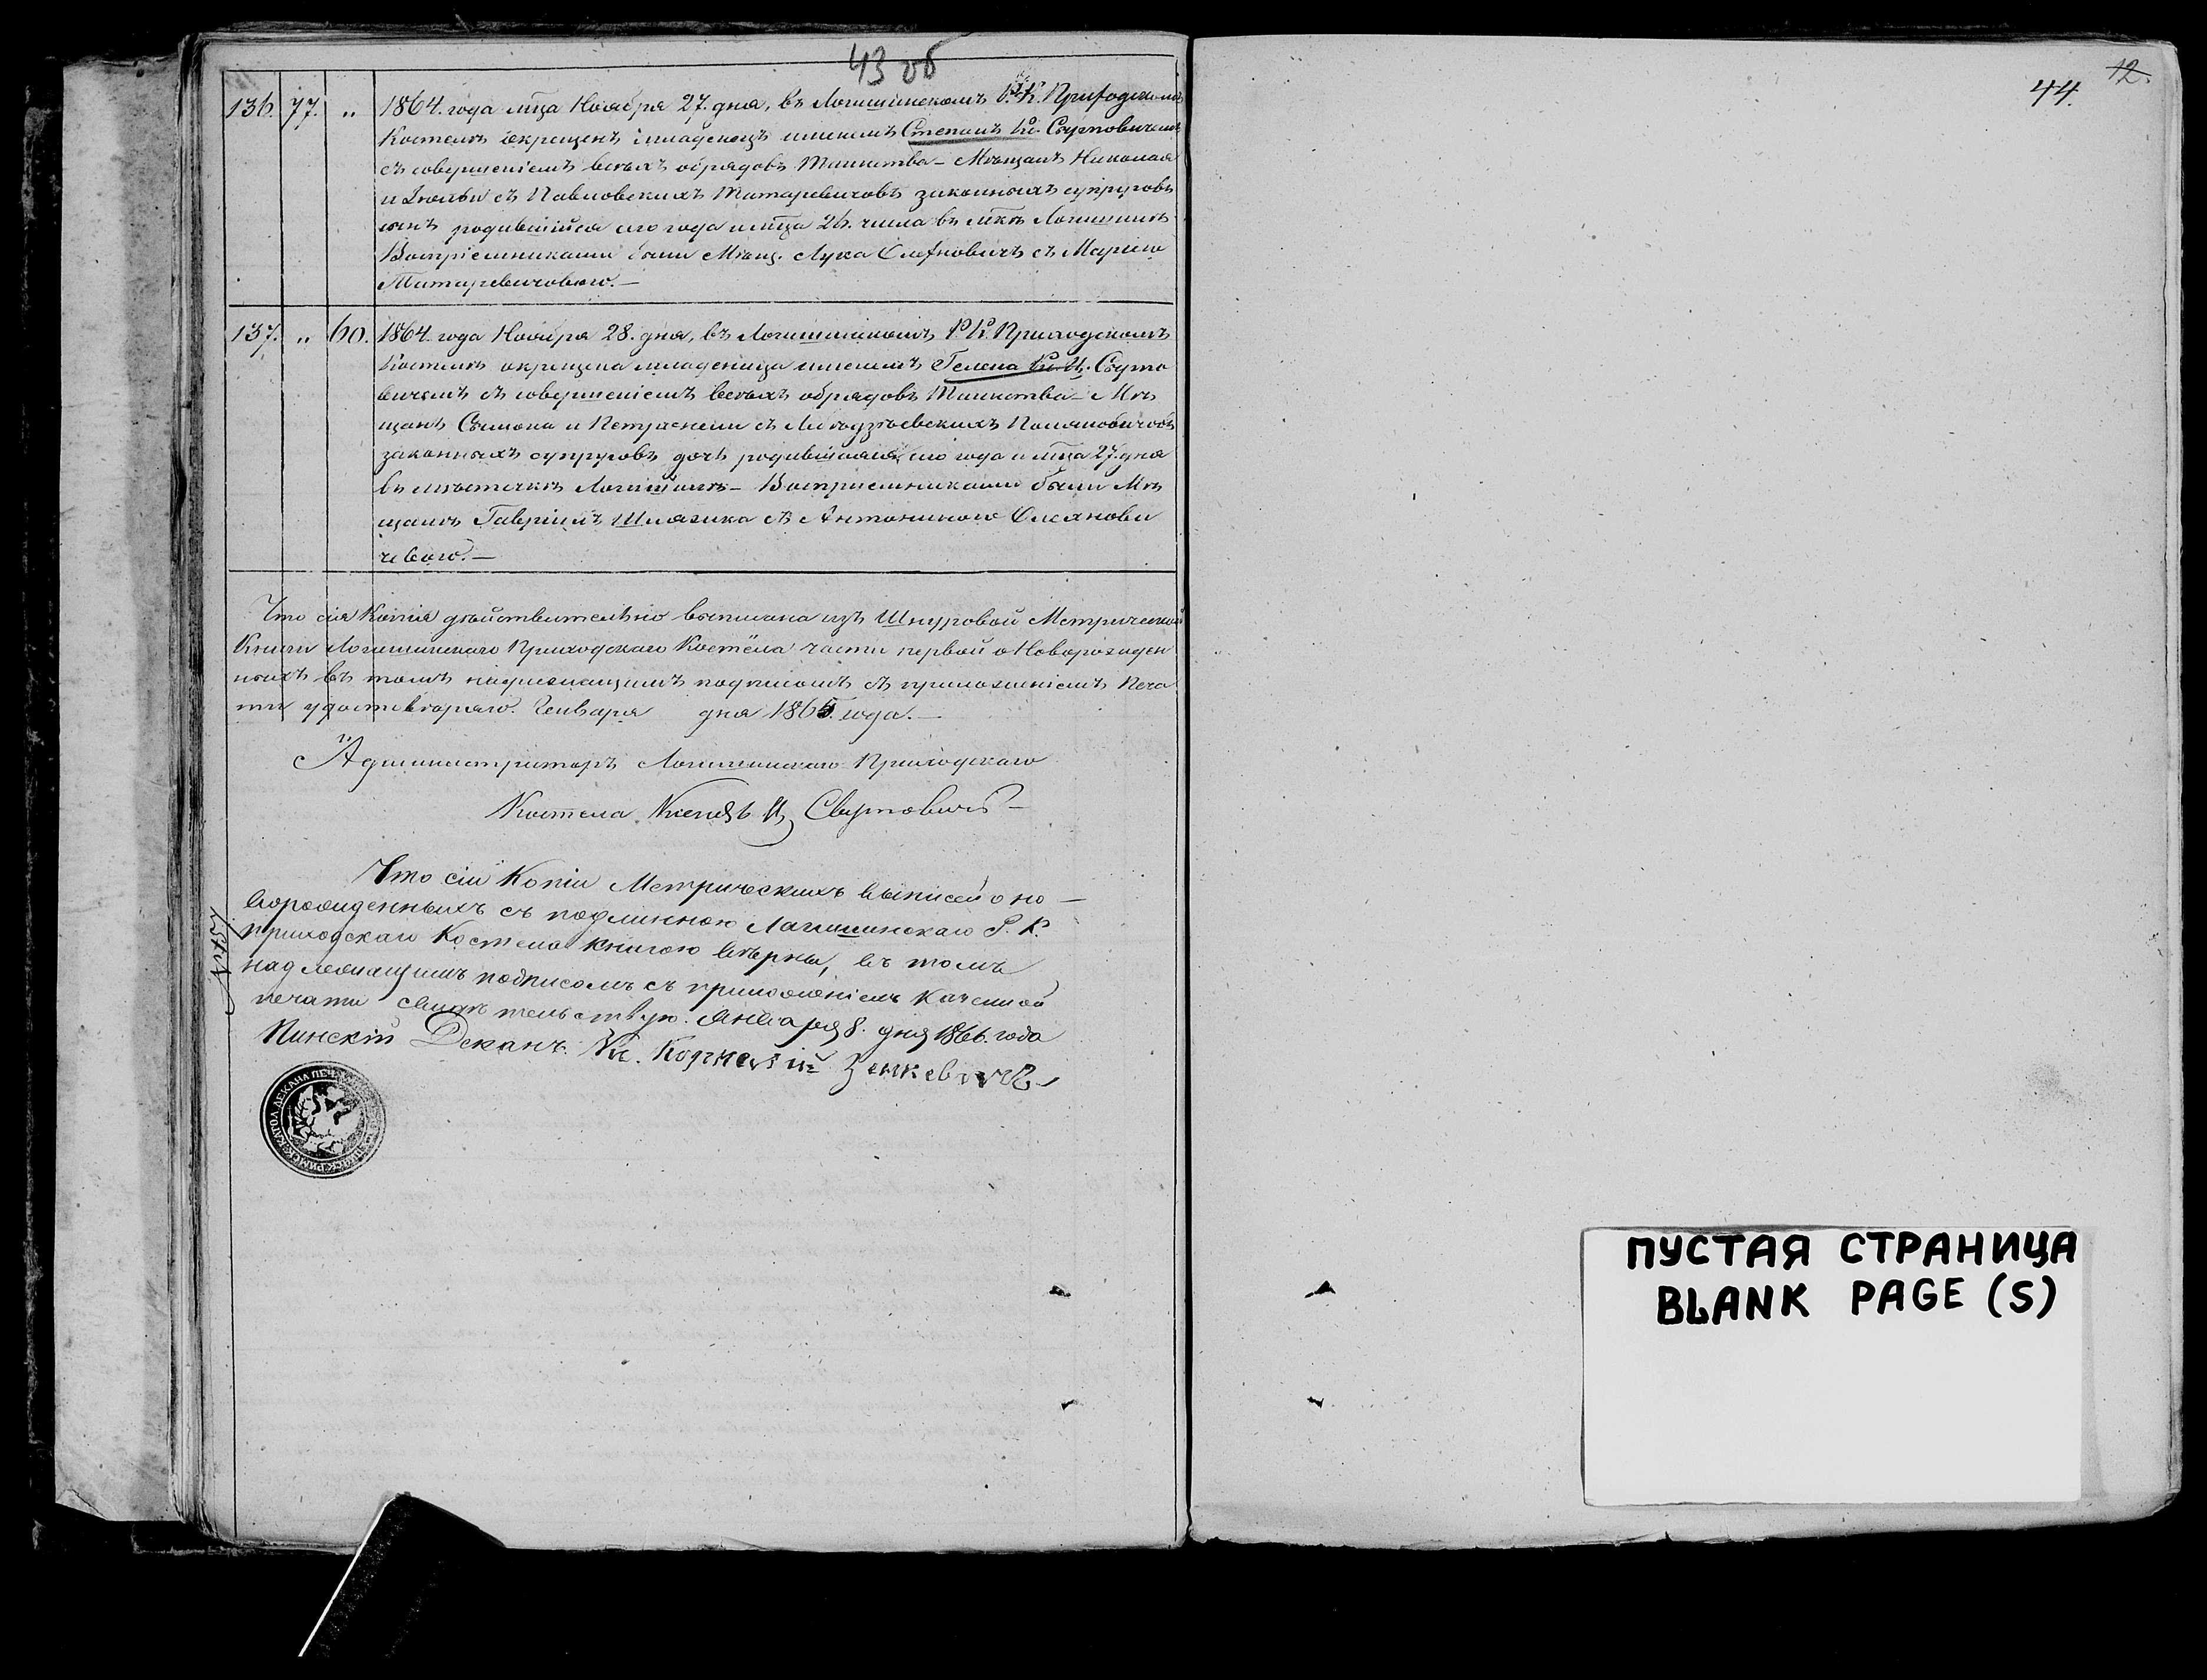 43 об
136. 77. „ 1864. года мца Ноября 27. дня, въ Логишинскомъ Р. К. Приходскомъ
Костелѣ окрещенъ младенецъ именемъ Степанъ Кс. Свутовичемъ
съ совершеніемъ всѣхъ обрядовъ Таинства – Мѣщанъ Николая
и Юліи съ Павловскихъ Татаревичовъ законныхъ супруговъ
сынъ родившійся сего года и мца 26. числа въ мткѣ Логишинѣ
Воспріемниками были Мѣщ. Лука съ Маріею
Татаревичовою. –
137. „ 60. 1864. года Ноября 28. дня, въ Логишинскомъ Р. К. Приходскомъ
Костелѣ окрещена младеница именемъ Гелена Кс. И. Свуто
вичемъ съ совершеніемъ всѣхъ обрядовъ Таинства – Мѣ
щанъ Сымона и Петронели съ
законныхъ супруговъ дочь родившаяся сего года и мца 27. дня
въ мѣстечкѣ Логишинѣ – Воспріемниками были Мѣ
щане Гавріилъ съ Антониною Олехнови
чевою. –
Что сія Копія дѣйствительно выписана изъ Шнуровой Метрической
Книги Логишинскаго Приходскаго Костёла части первой о Новорожден
ныхъ въ томъ надлежащимъ подписомъ съ приложеніемъ Печа
ти удостовѣряю. Генваря дня 1865. года. –
Администраторъ Логишинскаго Приходскаго
Костела Ксендзъ И. Свутовичъ –
Что сіи Копіи Метрическихъ выписей о но –
ворожденныхъ съ подлинною Логишинскаго Р. К.
приходскаго Костела книгою вѣрны, въ томъ
надлежащимъ подписомъ съ приложеніемъ казенной
печати свидѣтельствую. Января 8. дня 1866. года
Пинскій Деканъ Кс. Корнелій Зенкевичъ
44.
12.
ПУСТАЯ СТРАНИЦА
BLANK PAGE (S)